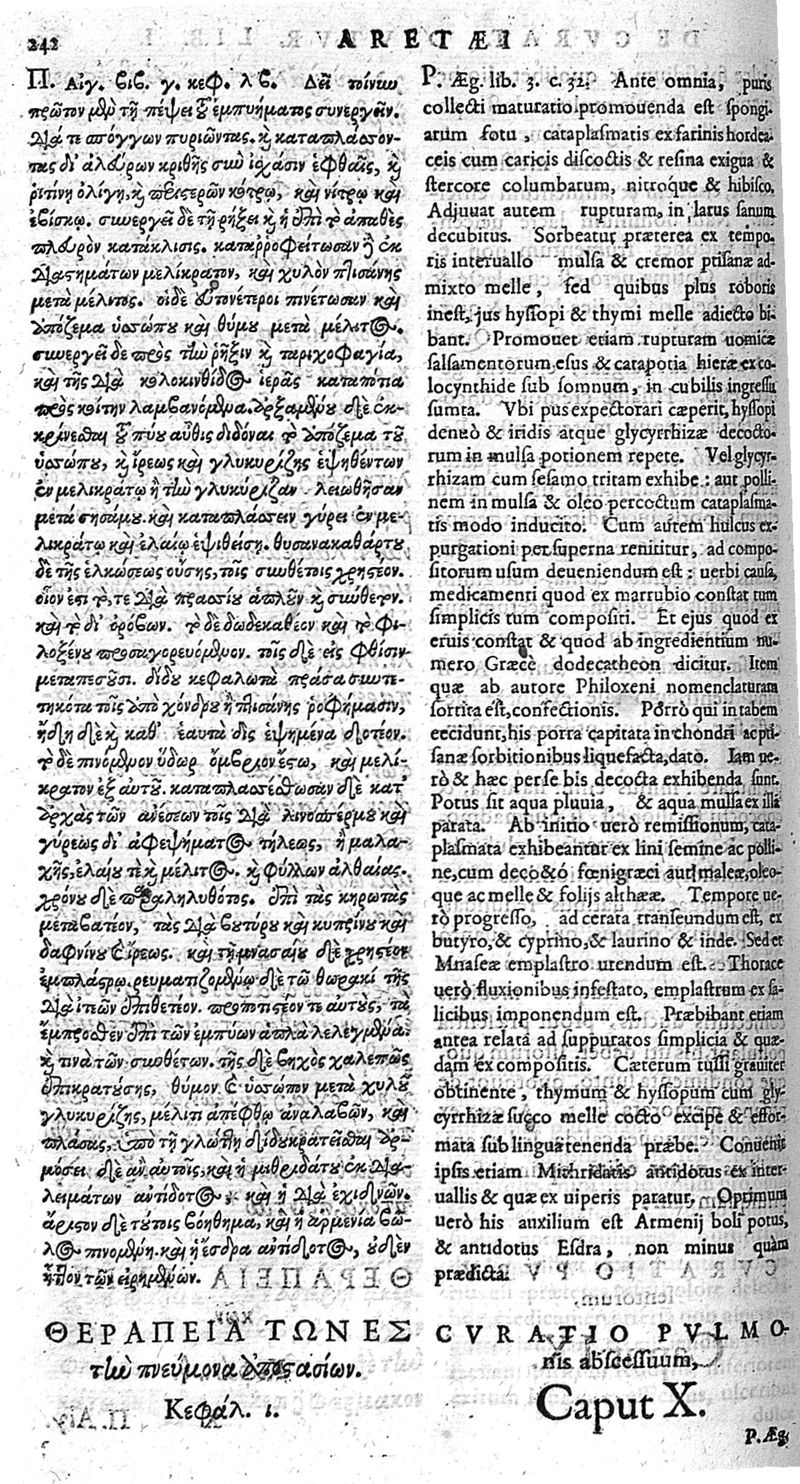 242
ARETÆI
Π. Αἰγ. βιβ. γ. κεφ. λβ. Δεῖ τοίνυν
πρῶτον μὲν τῇ πέψει τοῦ ἐμπυήματος συνεργεῖν.
διά τε σπόγγων πυριῶντας. καὶ καταπλάσσον-
τας δι' ἀλεύρων κριθῆς σὺν ἰσχάσιν ἑφθαῖς, καὶ
ῥιτίνη ὀλίγη, καὶ περιστερῶν κόπρῳ, καὶ νίτρῳ καὶ
ἐβίσκῳ. συνεργεῖ δὲ τῇ ῥήξει καὶ ἡ ἐπὶ τὸ ἀπαθὲς
πλευρὸν κατάκλισις. καταῤῥοφείτωσαν δὲ ἐκ
διαστημάτων μελίκρατον. καὶ χυλὸν πτισάνης
μετὰ μέλιτος. οἱ δὲ εὐτονέτεροι πινέτωσαν καὶ
ἀπόζεμα ὑσώπου καὶ θύμου μετὰ μέλιτος.
συνεργεῖ δὲ πρὸς τὴν ῥῆξιν καὶ ταριχοφαγία,
καὶ τῆς διὰ κολοκινθίδος ἱερᾶς καταπότια
πρὸς κοίτην λαμβανόμενα. ἀρξαμένου δὲ ἐκ-
κρίνεσθαι τοῦ πύου αὖθις διδόναι τὸ ἀπόζεμα τοῦ
ὑσώπου, καὶ ἴρεως καὶ γλυκυρίζης ἑψηθέντων
ἐν μελικράτῳ ἢ τὴν γλυκύριζαν λειωθῆσαν
μετὰ σησάμου. καὶ καταπλάσσειν γύρει ἐν με-
λικράτῳ καὶ ἐλαίῳ ἑψιθείση. θυσανακαθάρτου
δὲ τῆς ἑλκώσεως οὔσης, τοῖς συνθέτοις χρηστέον.
οἷον ἐστι τό, τε διὰ πρασίου ἁπλοῦν καὶ σύνθετον.
καὶ τὸ δι' ὀρόβων. τὸ δὲ δωδεκάθεον καὶ τὸ Φι-
λοξένου προσαγορευόμενον. τοῖς δὲ εἰς φθίσιν
μεταπεσοῦσι. δίδου κεφαλωτὰ πράσα συντε-
τηκότα τοῖς ἀπὸ χόνδρου ἢ πτισάνης ῥοφήμασιν,
ἤδη δὲ καὶ καθ' ἑαυτὰ δὶς ἑψημένα δοτέον.
τὸ δὲ πινόμενον ὕδωρ ὄμβριον ἔστω, καὶ μελί-
κρατον ἐξ αὐτοῦ. καταπλασσέσθωσαν δὲ κατ'
ἀρχὰς τῶν ἀνέσεων τοῖς διὰ λινοσπέρμου καὶ
γύρεως δι' ἀφεψήματος τήλεως, ἢ μαλά-
χης, ἐλαίου τε καὶ μέλιτος. καὶ φύλλων ἀλθαίας.
χρόνου δὲ παρεληλυθότος. ἐπὶ τὰς κηρωτὰς
μεταβατέον, τὰς διὰ βουτύρου καὶ κυπρίνου καὶ
δαφνίνου καὶ ἴρεως. καὶ τῇ μνασαίου δὲ χρηστέον
ἐμπλάστρῳ. ρευματιζομένῳ δὲ τῷ θώρακι τῆς
διὰ ἰτεῶν ἐπιθετέον. προποτιστέον τε αὐτούς, τὰ
ἔμπροσθεν ἐπὶ τῶν ἐμπύων ἁπλᾶ λελεγμένα.
καὶ τινὰ τῶν συνθέτων. τῆς δὲ βηχὸς χαλεπῶς
ἐπικρατούσης, θύμον καὶ ὕσσωπον μετὰ χυλοῦ
γλυκυρίζης, μέλιτι ἀπέφθῳ ἀναλαβὼν, καὶ
πλάσας, ὑπὸ τῇ γλώττῃ δίδου κρατεῖσθαι. ἁρ-
μόσει δὲ ἂν αὐτοῖς, καὶ ἡ μιθριδάτου ἐκ δια-
λειμάτων ἀντίδοτος, καὶ ἡ διὰ ἐχιδνῶν.
ἄριστον δὲ τούτοις βοήθημα, καὶ ἡ ἀρμενία βῶ-
λος πινομένη. καὶ ἡ ἔσδρα ἀντίδοτος, οὐδὲν
ἧττον τῶν εἰρημένων.
ΘΕΡΑΠΕΙΑ ΤΩΝ ΕΣ
τὸν πνεύμονα ἀποστασίων.
Κεφάλ. ι.
P. Æg. lib. 3. c. 32. Ante omnia, puris
collecti maturatio promovenda est spongi-
arum fotu, cataplasmatis ex farinis hordea-
ceis cum caricis discoctis & resina exigua &
stercore columbarum, nitroque & hibisco.
Adjuvat autem rupturam, in latus sanum
decubitus. Sorbeatur præterea ex tempo-
ris interuallo mulsa & cremor ptisanæ ad-
mixto melle, sed quibus plus roboris
inest, jus hyssopi & thymi melle adiecto bi-
bant. Promovet etiam rupturam uomicæ
salsamentorum esus & catapotia hieræ ex co-
locynthide sub somnum, in cubilis ingressu
sumta. Vbi pus expectorari cæperit, hyssopi
denuò & iridis atque glycyrrhizæ decocto-
rum in mulsa potionem repete. Vel glycyr-
rhizam cum sesamo tritam exhibe: aut polli-
nem in mulsa & oleo percoctum cataplasma-
tis modo inducito. Cum autem hulcus ex-
purgationi per superna renititur, ad compo-
sitorum usum deveniendum est: uerbi causa,
medicamenti quod ex marrubio constat tum
simplicis tum compositi. Et ejus quod ex
eruis constat & quod ab ingredientium nu-
mero Græcè dodecatheon dicitur. Item
quæ ab autore Philoxeni nomenclaturam
sortita est, confectionis. Porrò qui in tabem
eccidunt, his porra capitata in chondri ac pti-
sanæ sorbitionibus liquefacta, dato. Iam ue-
rò & hæc per se bis decocta exhibenda sunt.
Potus sit aqua pluuia, & aqua mulsa ex illa
parata. Ab initio uerò remissionum, cata-
plasmata exhibeantur ex lini semine ac polli-
ne, cum decocto fœnigræci aut maleæ, oleo-
que ac melle & folijs altheæ. Tempore ue-
rò progresso, ad cerata transeundum est, ex
butyro, & cyprino, & laurino & inde. Sed et
Mnaseæ emplastro utendum est. Thorace
uerò fluxionibus infestato, emplastrum ex sa-
licibus imponendum est. Præbibant etiam
antea relata ad suppuratos simplicia & quæ-
dam ex compositis. Cæterum tussi grauiter
obtinente, thymum & hyssopum cum gly-
cyrrhizæ succo melle cocto excipe & effor-
mata sub lingua tenenda præbe. Convenit
ipsis etiam Mithridatis antidotus ex inter-
uallis & quæ ex uiperis paratur. Optimum
uerò his auxilium est Armenij boli potus,
& antidotus Esdra, non minus quàm
prædicta.
CVRATIO PVLMO-
nis abscessuum,
Caput X.
P. Æg.